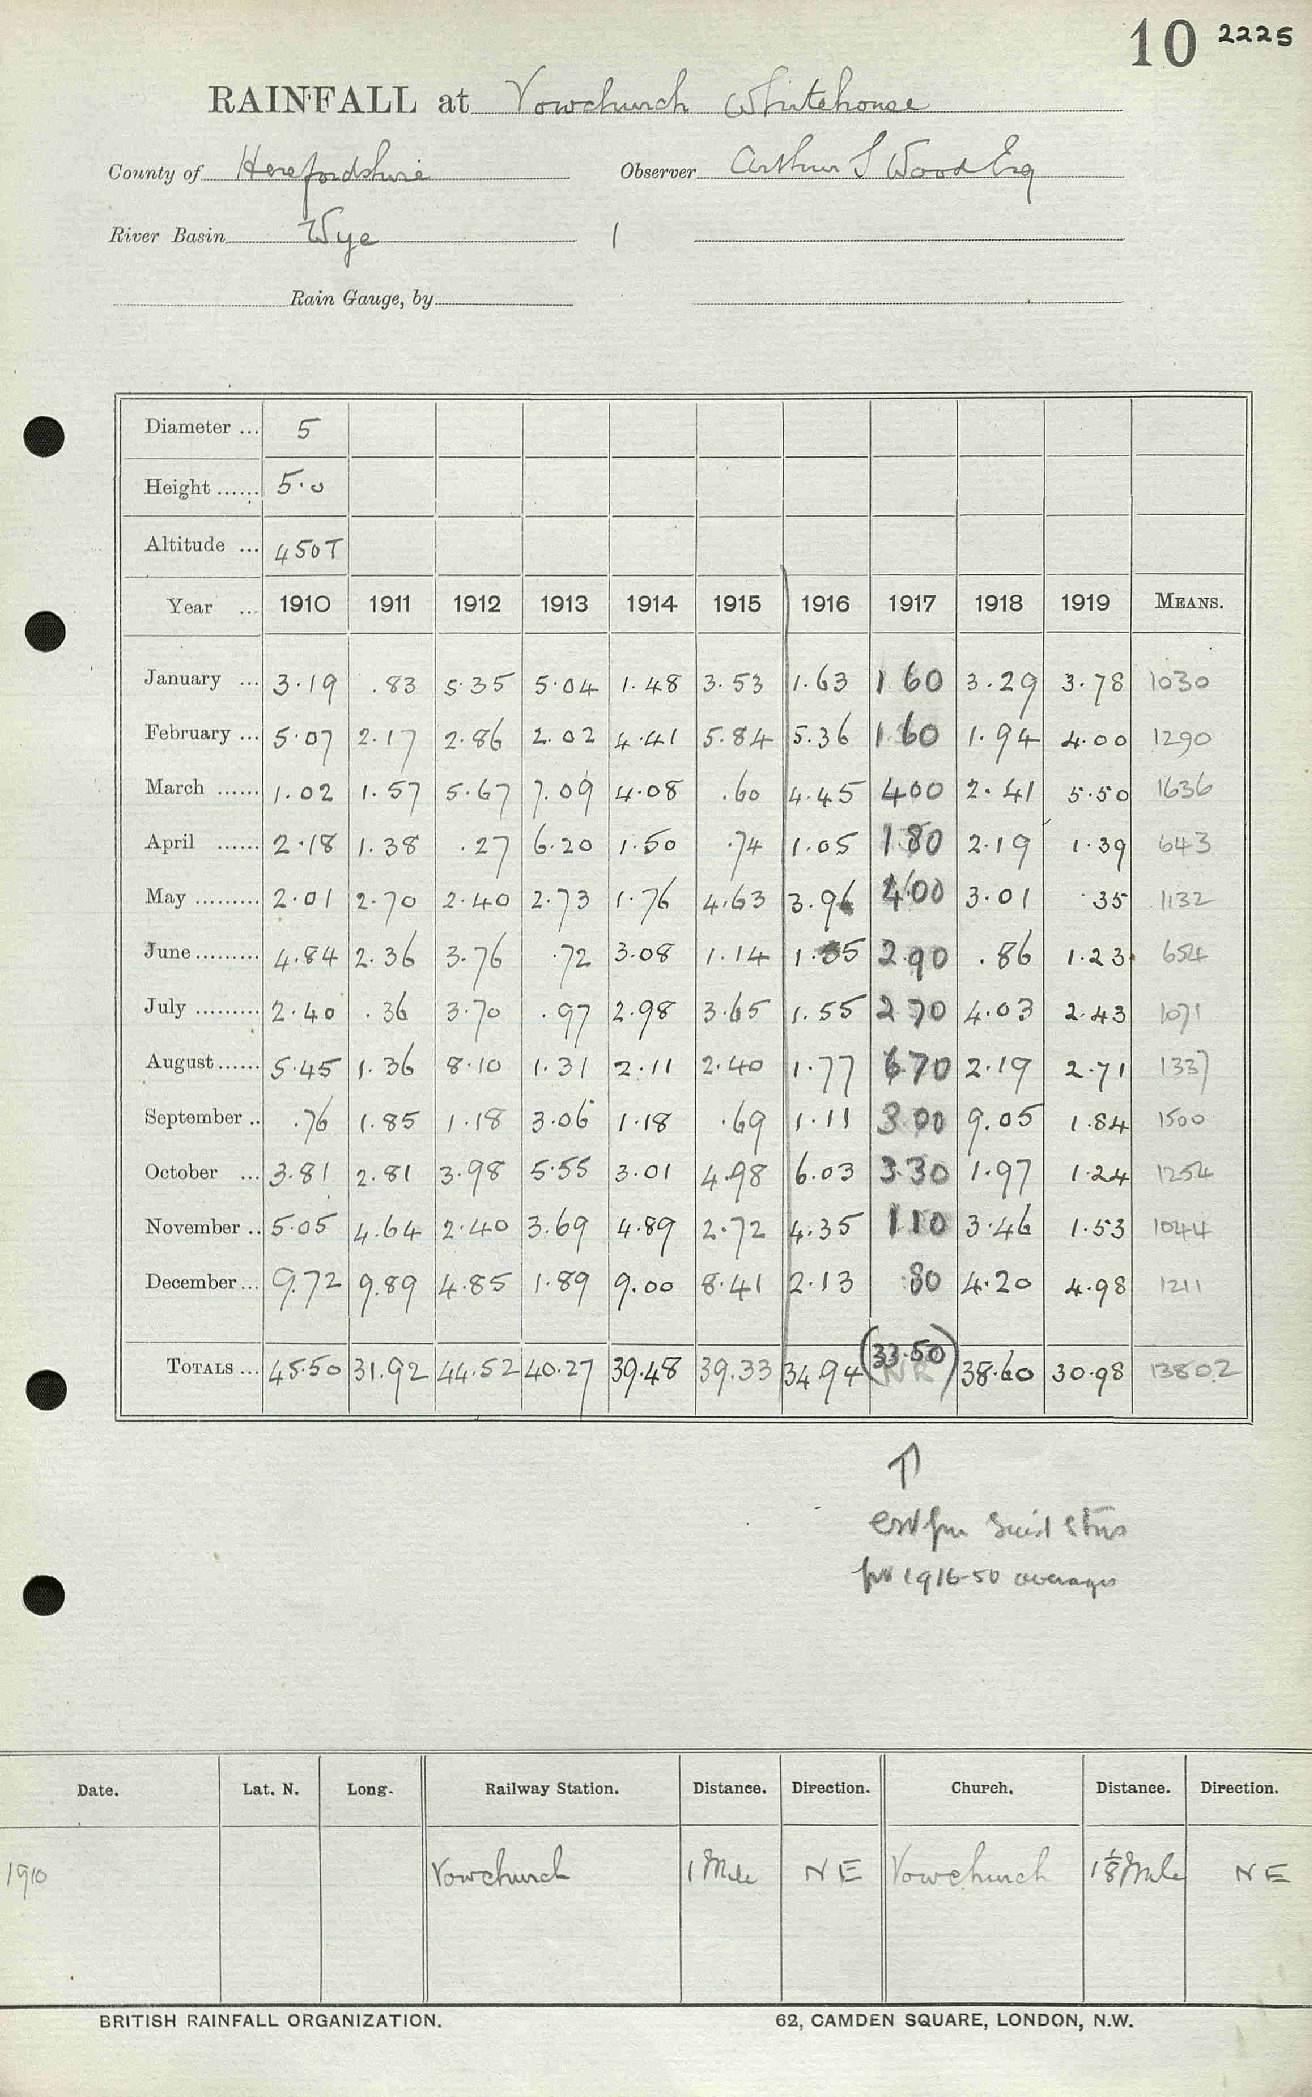 10 2225
RAINFALL at Vowchurch Whitehouse
County of Herefordshire Observer Arthur S Wood Esq
River Basin Wye 1
Rain Gauge, by
Diameter ... 5
Height ...... 5.0
Altitude ... 450T
Year ... 1910 1911 1912 1913 1914 1915 1916 1917 1918 1919 MEANS.
January ... 3.19 .83 5.35 5.04 1.48 3.53 1.63 1 60 3.29 3.78 1030
February ... 5.07 2.17 2.86 2.02 4.41 5.84 5.36 1.60 1.94 4.00 1290
March ...... 1.02 1.57 5.67 7.09 4.08 .60 4.45 400 2.41 5.50 1636
April ...... 2.18 1.38 .27 6.20 1.50 .74 1.05 1.80 2.19 1.39 643
May ......... 2.01 2.70 2.40 2.73 1.76 4.63 3.96 4.00 3.01 .35 1132
June ......... 4.84 2.36 3.76 .72 3.08 1.14 1.55 2.90 .86 1.23 654
July ......... 2.40 .36 3.70 .97 2.98 3.65 1.55 2 70 4.03 2.43 1071
August ...... 5.45 1.36 8.10 1.31 2.11 2.40 1.77 6.70 2.19 2.71 1337
September .. .76 1.85 1.18 3.06 1.18 .69 1.11 3.00 9.05 1.84 1500
October ... 3.81 2.81 3.98 5.55 3.01 4.98 6.03 3.30 1.97 1.24 1254
November .. 5.05 4.64 2.40 3.69 4.89 2.72 4.35 1 10 3.46 1.53 1044
December ... 9.72 9.89 4.85 1.89 9.00 8.41 2.13 .80 4.20 4.98 1211
TOTALS ... 45.50 31.92 44.52 40.27 39.48 39.33 34.94 (33.50) 38.60 30.98 13802
↑
for 1916-50 averages
Date. Lat. N. Long. Railway Station. Distance. Direction. Church. Distance. Direction.
1910 Vowchurch 1 Mile NE Vowchurch 1 1/8 Mile NE
BRITISH RAINFALL ORGANIZATION. 62, CAMDEN SQUARE, LONDON, N.W.